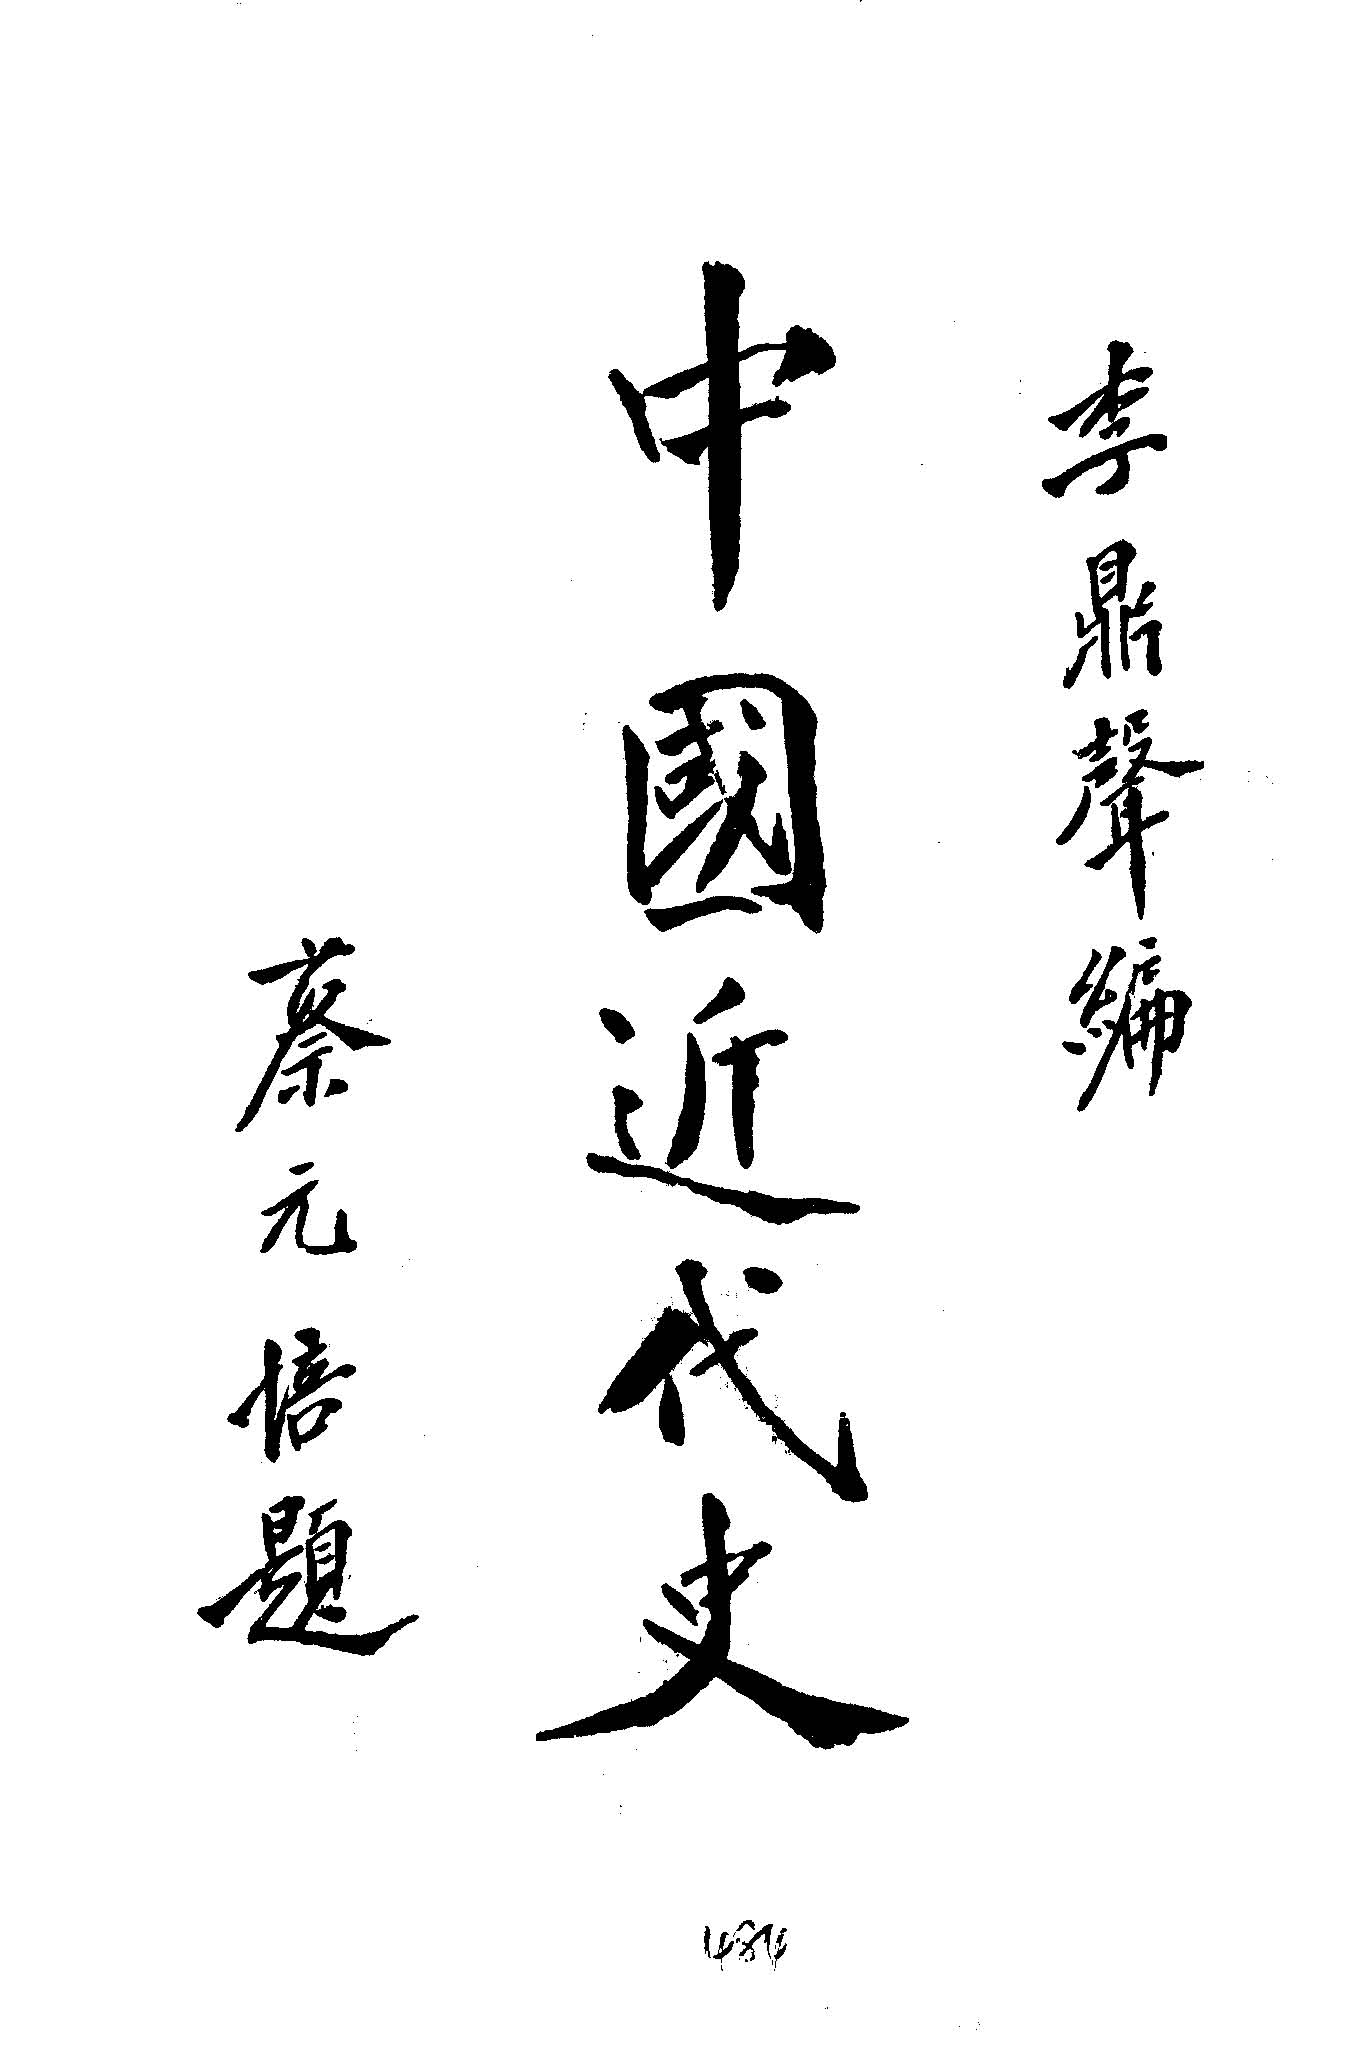 李鼎聲編
中國近代史
蔡元培題
484